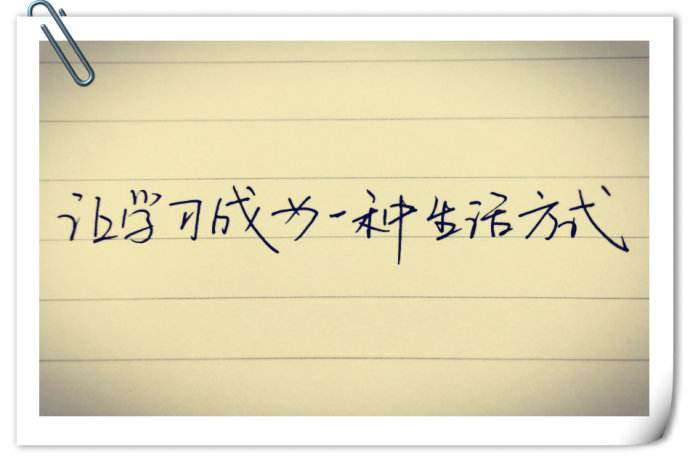 让学习成为一种生活方式